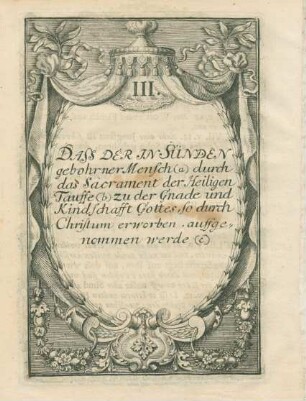 III.
DASS DER IN SÜNDEN
gebohrner Mensch (a) durch
das Sacrament der Heiligen
Tauffe (b) zu der Gnade und
Kindschafft Gottes, so durch
Christum erworben, auffge,
nommen werde (c)